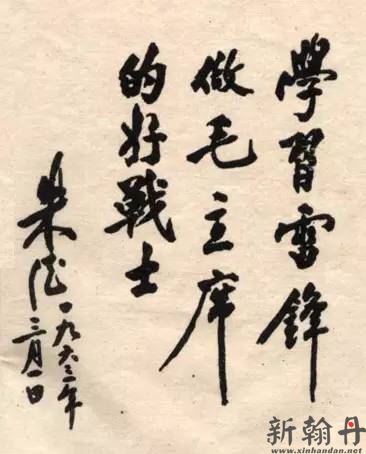 學習雷鋒
做毛主席
的好戰士
朱德
一九六三年
三月一日
新翰丹
www.xinhandan.net